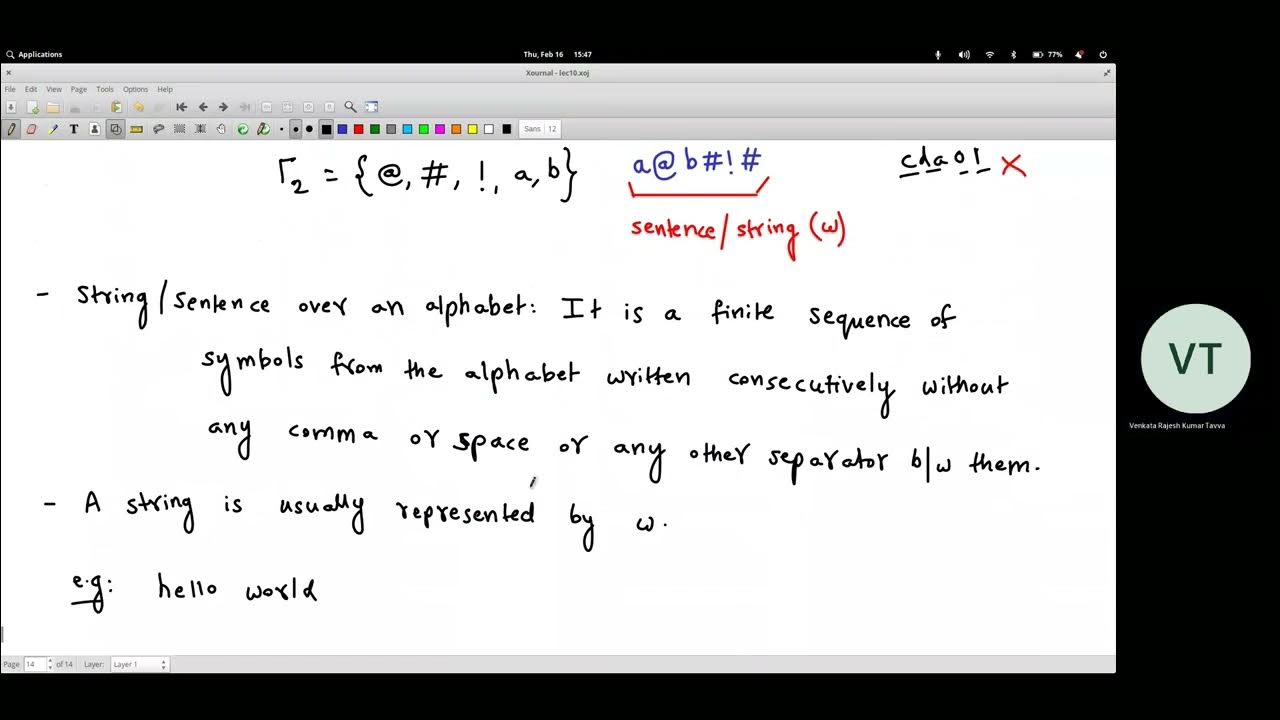 Applications
Thu, Feb 16 15:47
77%
Xournal - lec10.xoj
File Edit View Page Tools Options Help
Sans 12
Γ₂ = {@, #, !, a, b}
a@b#!#
cda01 X
sentence/string (w)
- String/sentence over an alphabet: It is a finite sequence of
symbols from the alphabet written consecutively without
any comma or space or any other separator b/w them.
- A string is usually represented by w.
e.g: hello world
VT
Venkata Rajesh Kumar Tavva
Page 14 of 14 Layer: Layer 1